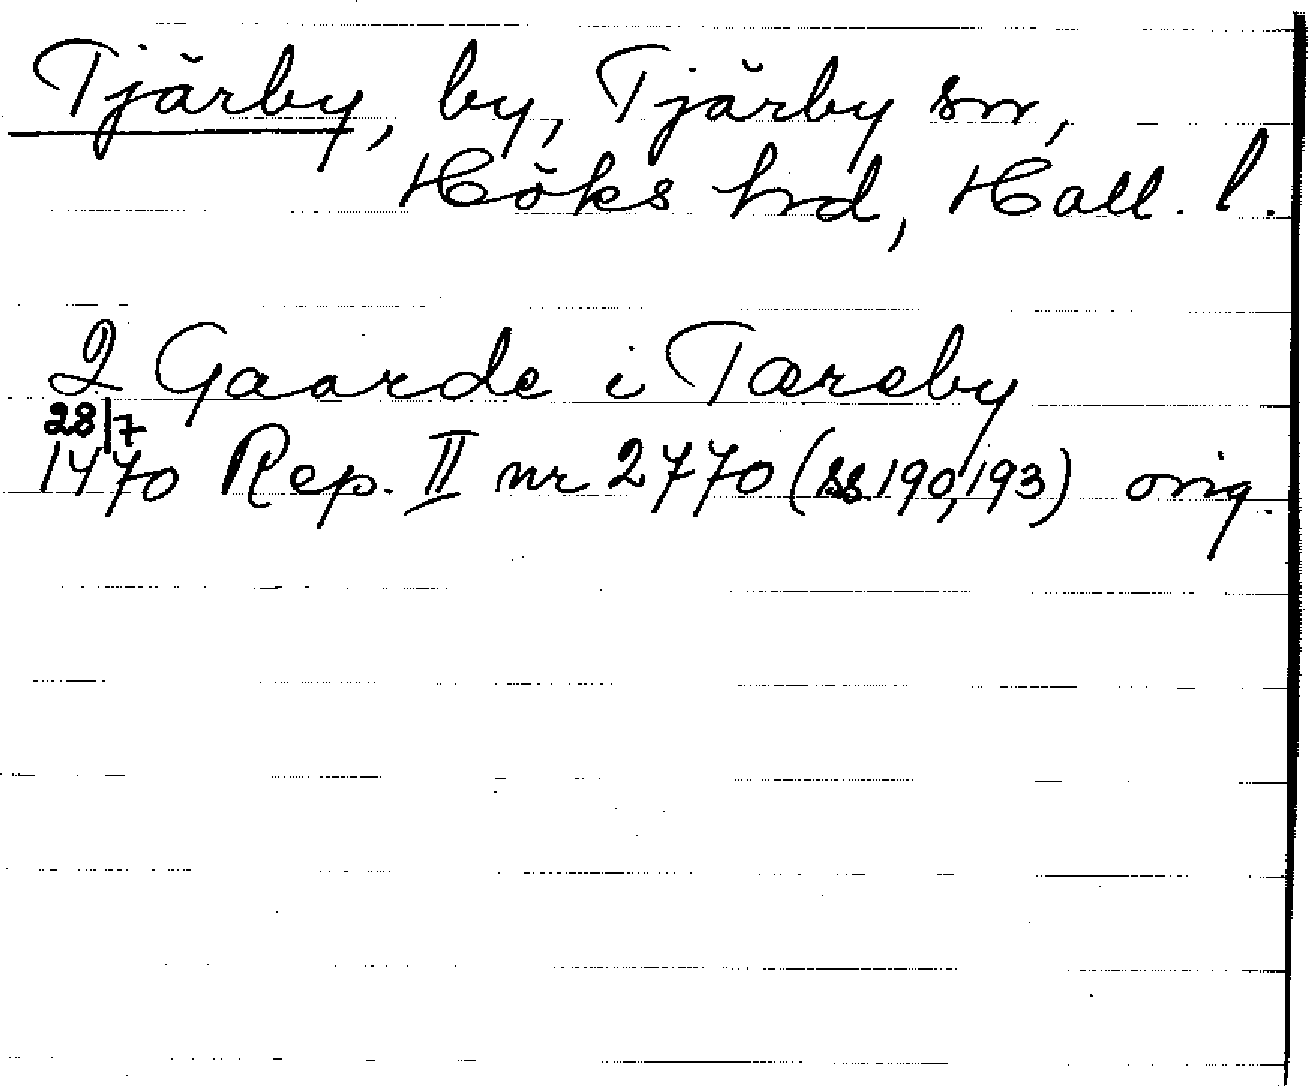 Tjärby, by, Tjärby sn,
Höks hrd, Hall. l.
2 Gaarde i Tæreby
28/7
1470 Rep. II nr 2770 (ss 190,193) orig.